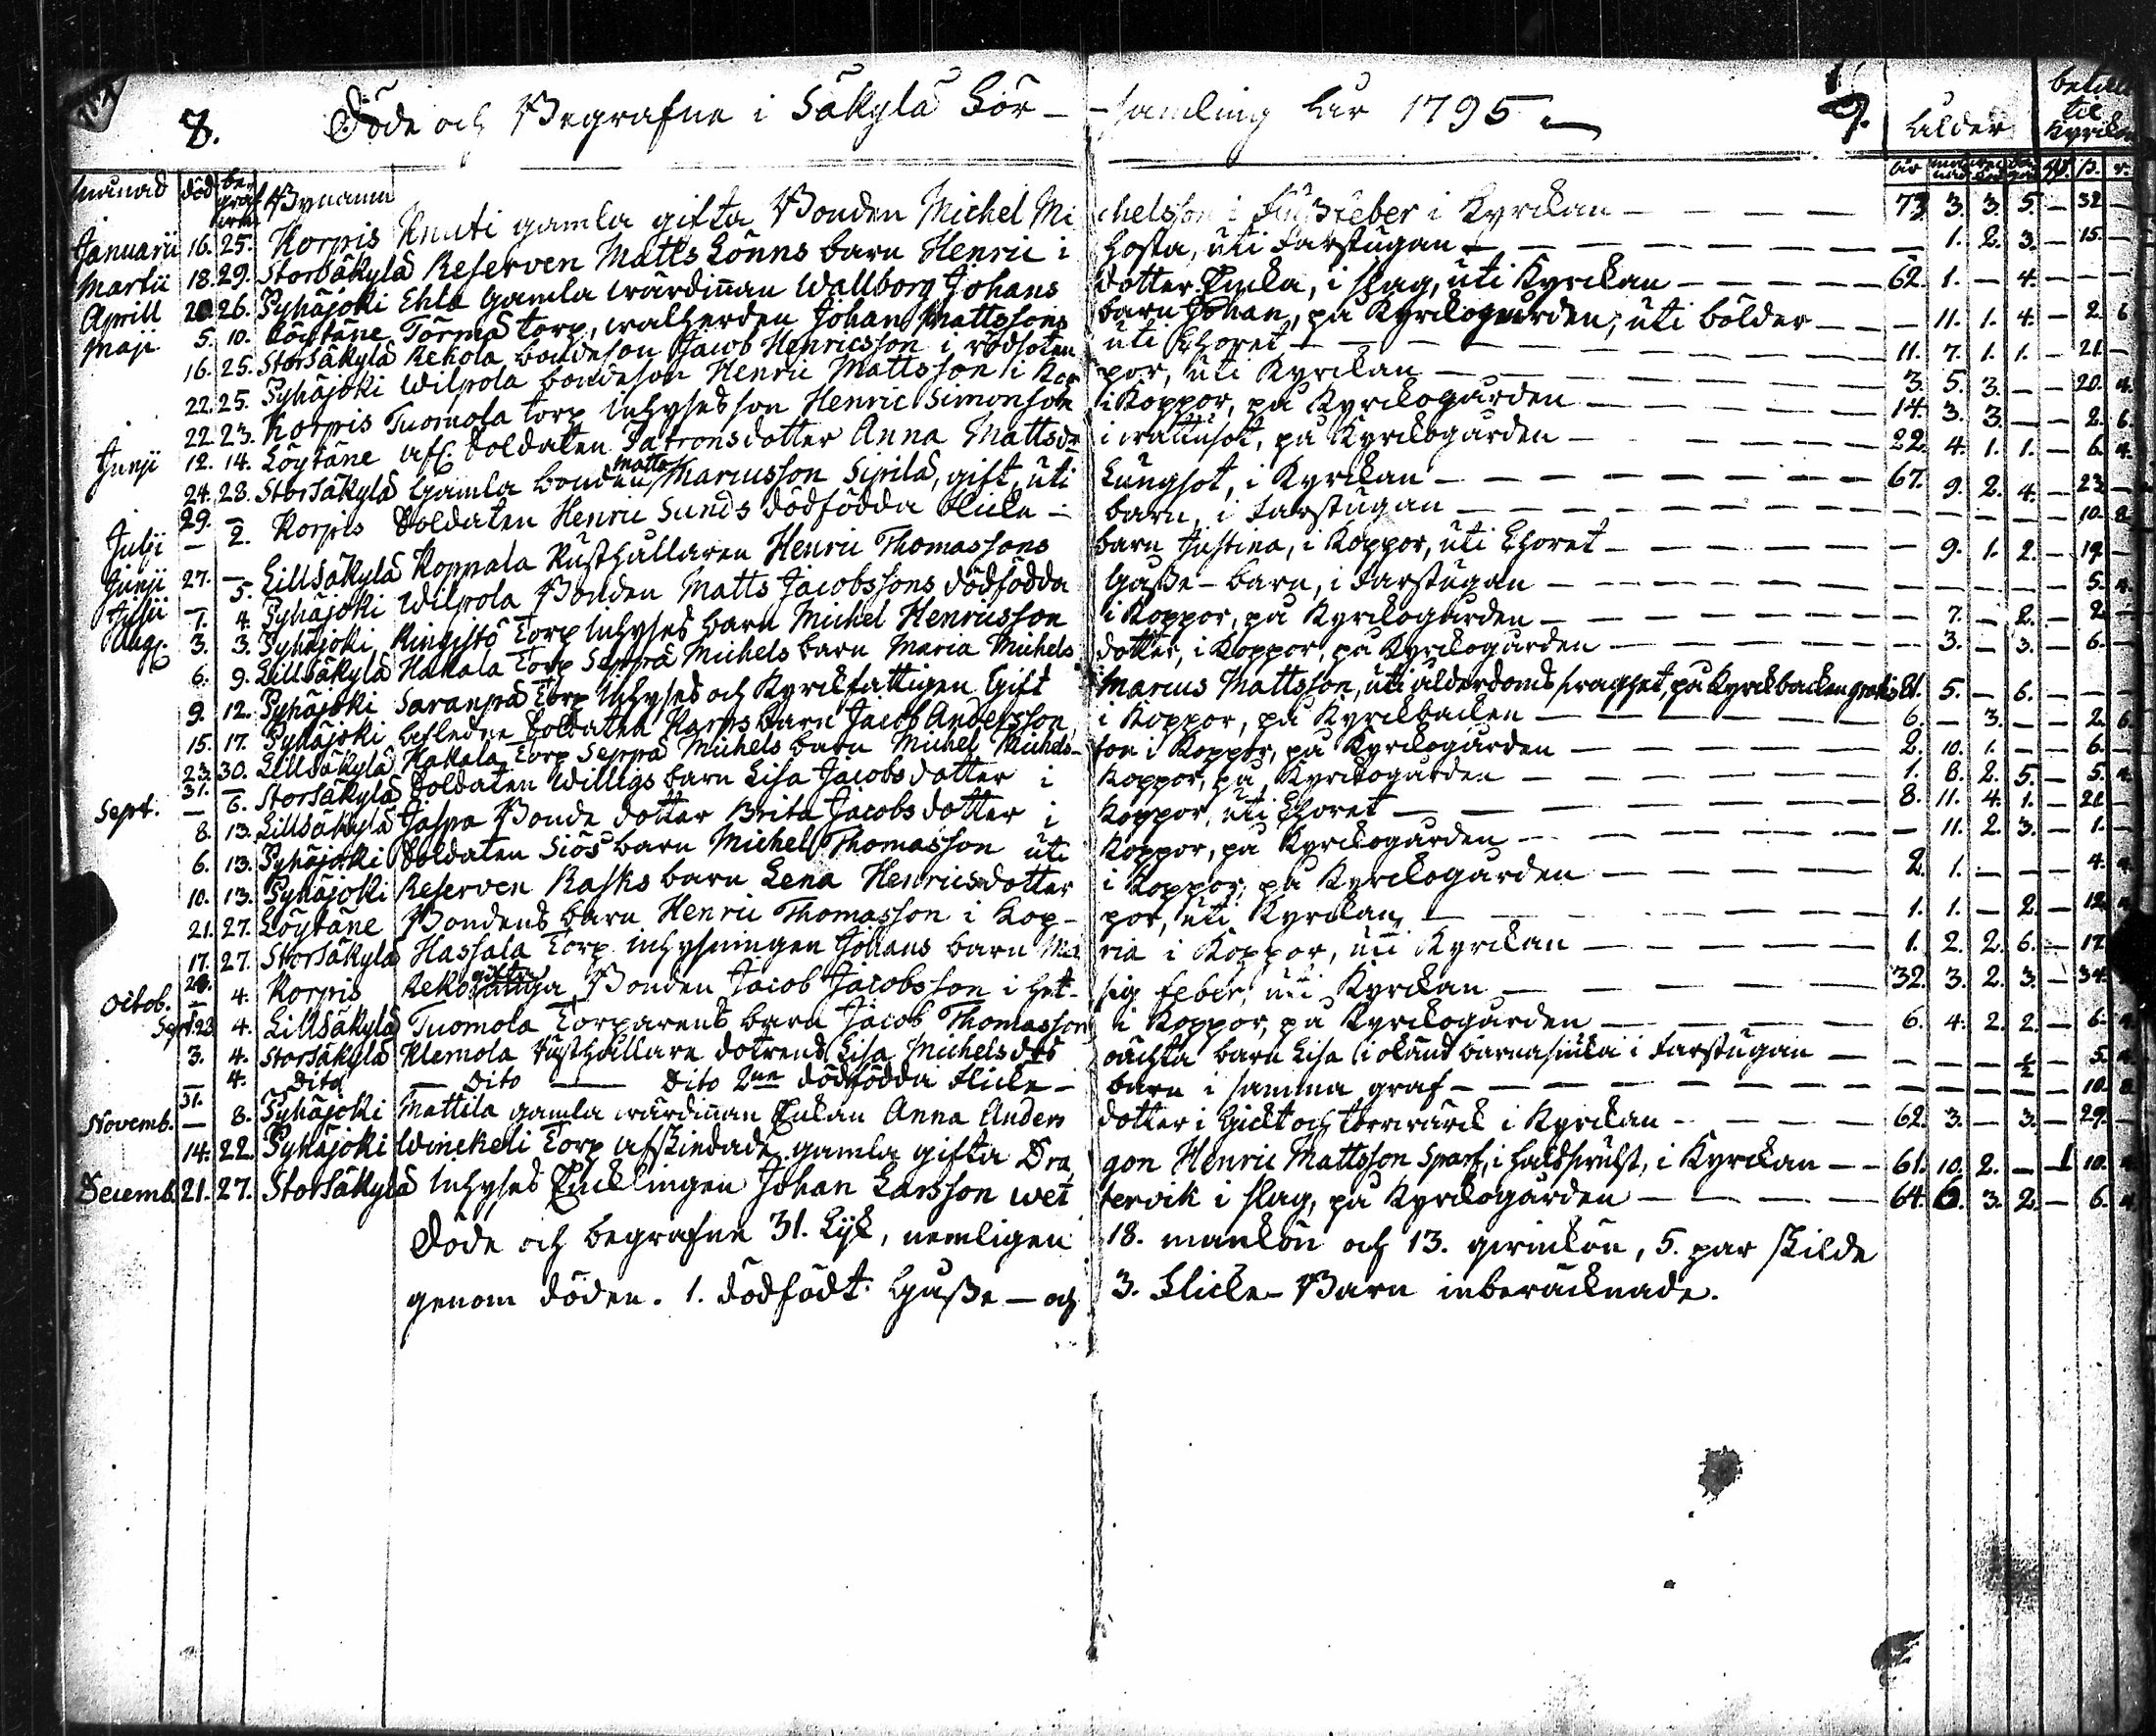 8. Döde och Begrafne i Säkylä För-samling åhr 1795 9.
ålder
til Kyrkan
månad död begrafne Bynamn år
Januarii 16. 25. Korpis Knuti gamla gifta Bonden Michel Michelsson i feber i Kyrckan 73. 3. 3. 5. - 32 -
Martii 18. 29. Storsäkylä Reserven Matts Lönns barn Henric i hosta, uti Farstugun - 1. 2. 3. - 15. -
Aprill 20. 26. Pyhäjoki Ehla gamla wärdinnan Wallborg Johans dotter Enka, i slag, uti Kyrckan 62. 1. - 4. - - -
Maji 5. 10. Löytäne Törmä torp, walherden Johan Mattssons barn Johan, på Kyrckogården, uti bölder - 11. 1. 4. - 2. 6
16. 25. Storsäkylä Rehola bondeson Jacob Henricsson i rödsoten uti Choret 11. 7. 1. 1. - 21. -
22. 25. Pyhäjoki Wilpola bondeson Henric Mattsson i Koppor, uti Kyrckan 3. 5. 3. - - 20. 4.
22. 23. Korpis Tuomola torp inhyses son Henric Simonsson i Koppor, på Kyrckogården 14. 3. 3. - - 2. 6.
Junji 12. 14. Löytäne afs. Soldaten Patrons dotter Anna Mattsdr i wattusot, på Kyrckogården 22. 4. 1. 1. - 6. 4.
24. 28. Storsäkylä Gamla bonden Matts Marcusson Sipilä, gift, uti Lungsot, i Kyrckan 67. 9. 2. 4. - 23 -
29. -
Julji - 2. Korpis Soldaten Henric Sunds dödfödda Flicke-barn, i Farstugun - - - - - 10. 8
Junji 27. -
Julii - 5. Lillsäkylä Koppala Rusthållaren Henric Thomassons barn Justina, i Koppor, uti Choret - 9. 1. 2. - 19. -
1. 4. Pyhäjoki Wilpola Bonden Matts Jacobssons dödfödda Gosse-barn, i Farstugun - - - - - 5. 4.
Aug. 3. 3. Pyhäjoki Ringistö Torp inhyses barn Michel Henricsson i Koppor, på Kyrckogården - 7. - 2. - 2. -
6. 9. Lillsäkylä Hakala Torp Seppä Michels barn Maria Michels dotter, i Koppor, på Kyrckogården - 3. - 3. - 6. -
9. 12. Pyhäjoki Saranpä Torp Inhyses och Kyrckfattigen Gift Marcus Mattsson, uti ålderdoms swaghet, på Kyrckbacken gratis 5. - 6. - - -
15. 17. Pyhäjoki Soldaten Karps barn Jacob Andersson i Koppor, på Kyrckbacken 6. - 3. - - 2. 6.
23. 30. Lillsäkylä Hakala Torp Seppä Michels barn Michel Michelsson i Koppor, på Kyrckogården 2. 10. 1. - - 6. -
31. -
Sept. - 6. Storsäkylä Soldaten Willigs barn Lisa Jacobsdotter i Koppor, på Kyrckogården 1. 8. 2. 5. - 5. 4
8. 13. Lillsäkylä Jaspa Bonde dotter Brita Jacobsdotter i Koppor, uti Choret 8. 11. 4. 1. - 21 -
6. 13. Pyhäjoki Soldaten Siös barn Michel Thomasson uti Koppor, på Kyrckogården - 11. 2. 3. - 1. -
10. 13. Pyhäjoki Reserven Rasks barn Lena Henricsdotter i Koppor, på Kyrckogården 2. 1. - - - 4. 4.
21. 27. Löytäne Bondens barn Henric Thomasson i Koppor, uti Kyrckan 1. 1. - 2. - 12.
17. 27. Storsäkylä Hassala Torp inhysningen Johans barn Maria i Koppor, uti Kyrckan 1. 2. 2. 6. - 17.
Octob. - 4. Korpis Reko gifta Bonden Jacob Jacobsson i hetsig feber, uti Kyrckan 32. 3. 2. 3. - 34.
Sept. 23 4. Lillsäkylä Tuomola Torparens barn Jacob Thomasson i Koppor, på Kyrckogården 6. 4. 2. 2. - 6.
3. 4. Storsäkylä Klemola Rusthållare dotrens Lisa Michelsdrs oächta barn Lisa i okänd barnasjuka i Farstugun - - - ½ - 5.
- 4. Dito - Dito - Dito 2ne dödfödda Flicke-barn i samma graf - - - - - 10. 8
31.
Novemb. - 8. Pyhäjoki Mattila gamla wärdinnan Enkan Anna Anders dotter i Gickt och Torrwärck i Kyrckan 62. 3. - 3. - 29. -
14. 22. Pyhäjoki Winckeli Torp afskedade gamla gifta Dragon Henric Mattsson Sparf, i halsswulst, i Kyrckan 61. 10. 2. - 1 10.
Decemb. 21. 27. Storsäkylä Inhyses Encklingen Johan Larsson Wettervik i slag, på Kyrckogården 64. 6. 3. 2. - 6.
Döde och begrafne 31. Lijk, nemligen 18. mankön och 13. qwinkön, 5. par skilde
genom döden. 1. dödfödt Gosse- och 3. Flicke-Barn inberäcknade.